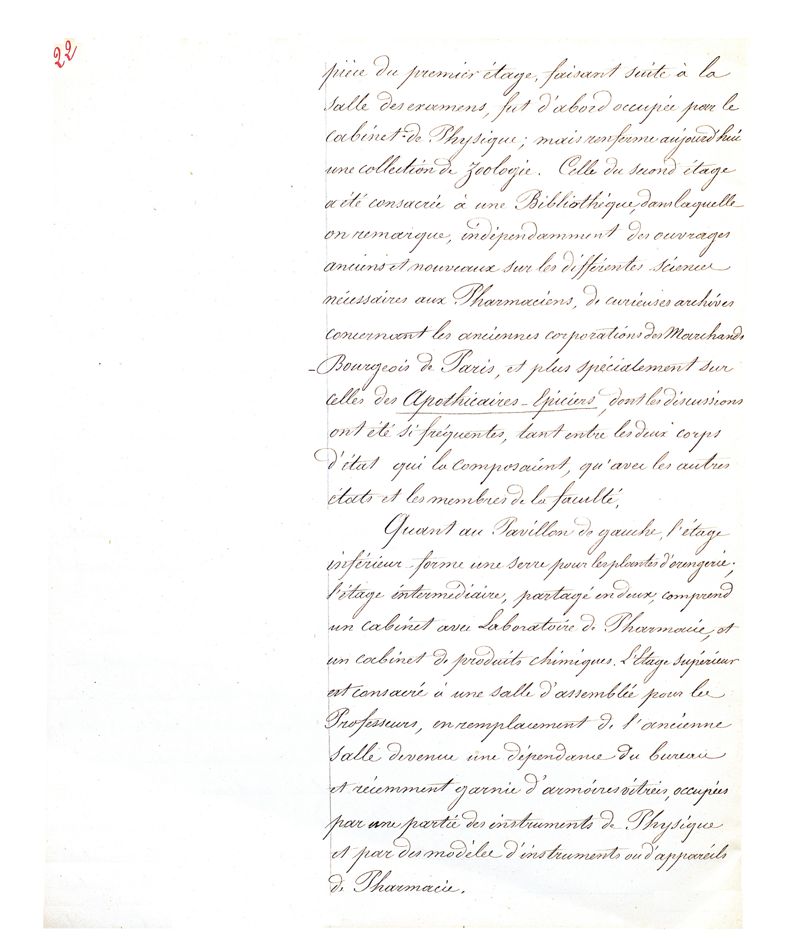 22
pièce du premier étage, faisant suite à la
salle des examens, fut d'abord occupée par le
cabinet de Physique ; mais renferme aujourd'hui
une collection de Zoologie. Celle du second étage
a été consacrée à une Bibliothèque, dans laquelle
on remarque, indépendamment des ouvrages
anciens et nouveaux sur les différentes sciences
nécessaires aux Pharmaciens, de curieuses archives
concernant les anciennes corporations des Marchands
Bourgeois de Paris, et plus spécialement sur
celles des Apothicaires-Epiciers, dont les discussions
ont été si fréquentes, tant entre les deux corps
d'état qui la composaient, qu'avec les autres
états et les membres de la faculté.
Quant au Pavillon de gauche, l'étage
inférieur forme une serre pour les plantes d'orangerie ;
l'étage intermédiaire, partagé en deux, comprend
un cabinet avec Laboratoire de Pharmacie, et
un cabinet de produits chimiques. L'Etage supérieur
est consacré à une salle d'assemblée pour les
Professeurs, en remplacement de l'ancienne
salle devenue une dépendance du bureau
et récemment garnie d'armoires vitrées, occupées
par une partie des instruments de Physique
et par des modèles d'instruments ou d'appareils
de Pharmacie.